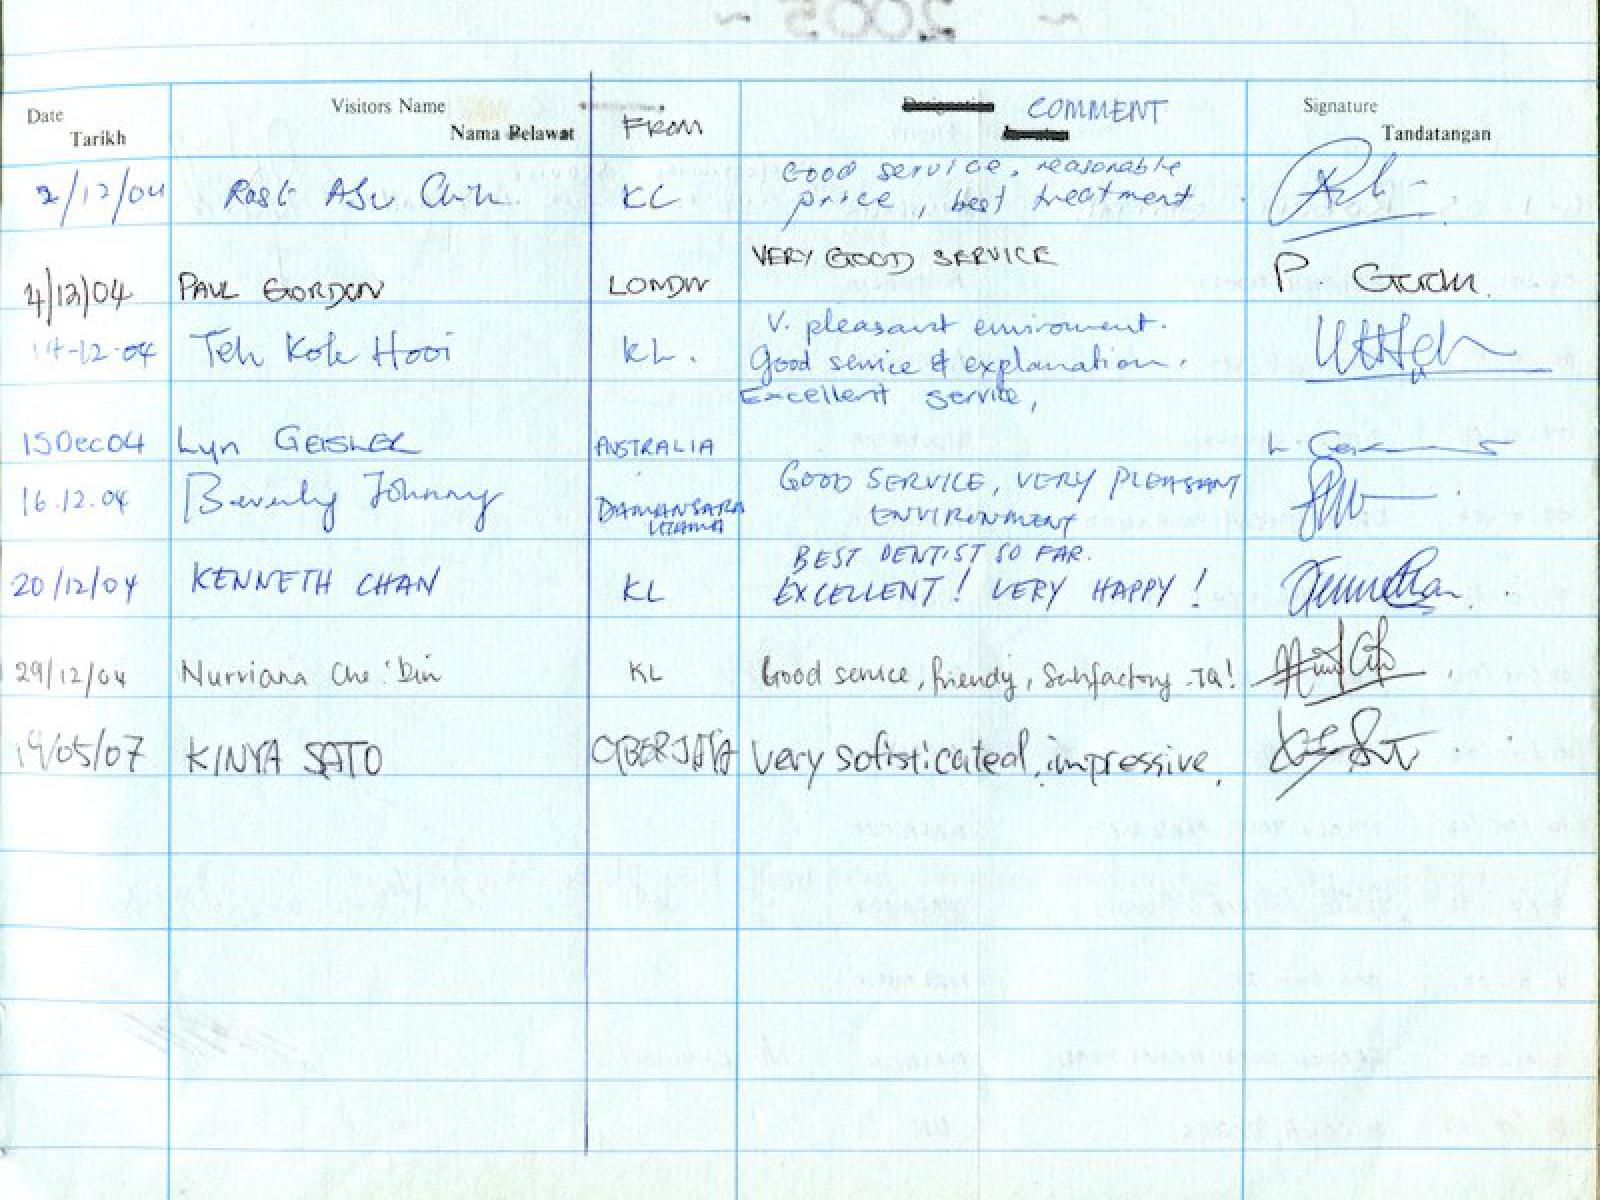 2005
Date Visitors Name COMMENT Signature
Tarikh Nama Pelawat FROM Tandatangan
Good service, reasonable
2/12/04 KL price, best treatment
VERY GOOD SERVICE
4/12/04 PAUL GORDON LONDON P.
V. pleasant enviroment.
14-12-04 Teh Kok Hooi KL. Good service & explanation.
Excellent service,
15 Dec 04 Lyn GEISLER AUSTRALIA
GOOD SERVICE, VERY PLEASANT
16.12.04 Beverly Johnny DAMANSARA
UTAMA ENVIRONMENT
BEST DENTIST SO FAR.
20/12/04 KENNETH CHAN KL EXCELLENT! VERY HAPPY!
29/12/04 Nurviana Che 'Din KL Good service, friendy, Satisfactory -TQ!
19/05/07 KINYA SATO CYBERJAYA Very sofisticated, impressive.